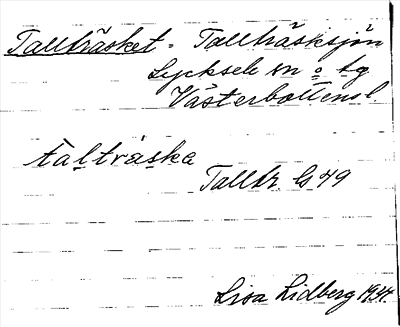 Tallträsket = Tallträsksjön
Lycksele sn o tg
Västerbottensl.
tàltràska
Talltr. G 79
Lisa Lidberg 1934.